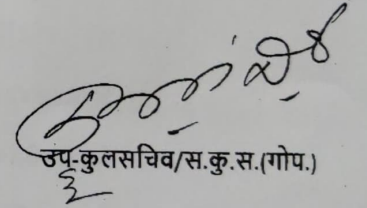 उप-कुलसचिव/स.कु.स.(गोप.)